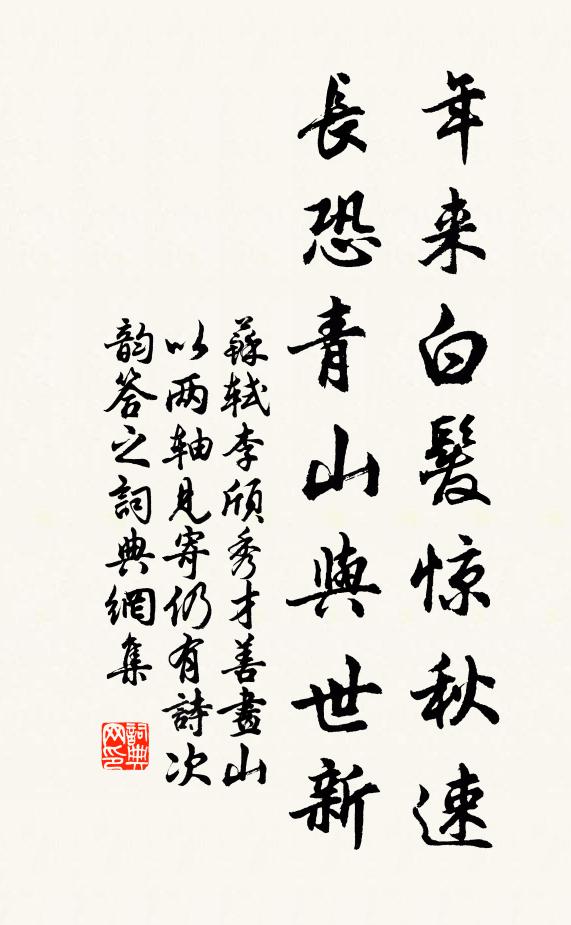 年来白髮惊秋速
長恐青山與世新
蘇轼李頎秀才善畫山
以两轴見寄仍有詩次
韵答之詞典網集
詞典网印